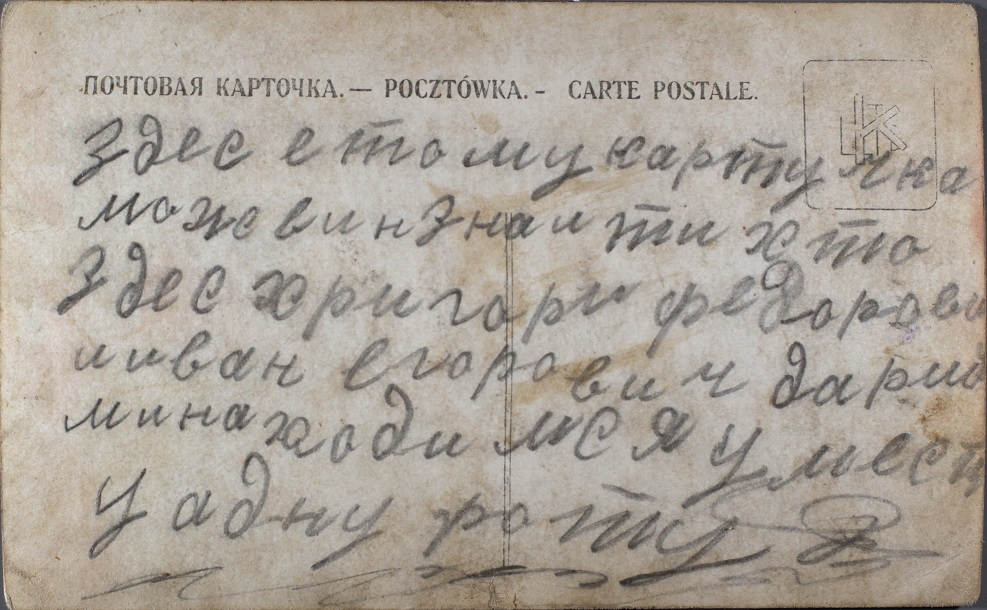 ПОЧТОВАЯ КАРТОЧКА.— POCZTÓWKA.- CARTE POSTALE.
здес етому картучка
може вин знаити хто
здес хригори федорови
и иван егорович дарио
ми находимся у мест
у адну роту